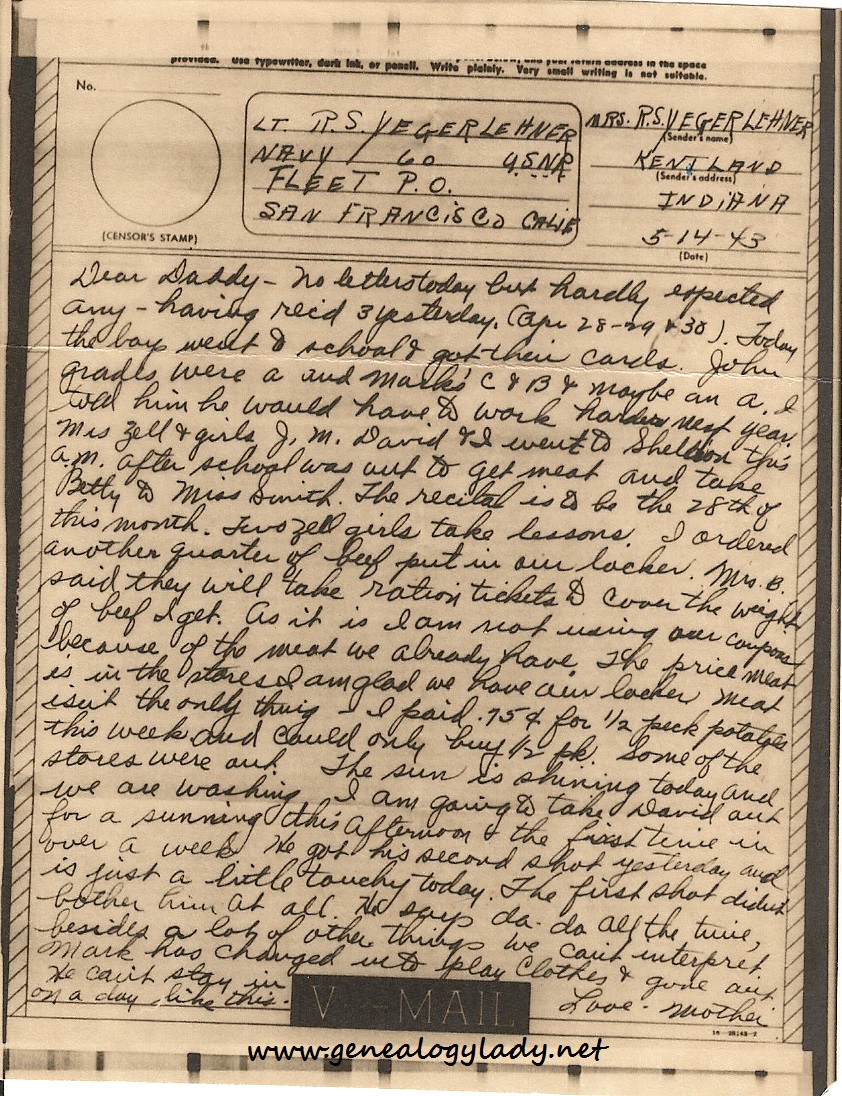 provided. Use typewriter, dark ink, or pencil. Write plainly. Very small writing is not suitable.
No.
(CENSOR'S STAMP)
LT. R.S. YEGERLEHNER
NAVY 60 USNR
FLEET P.O.
SAN FRANCISCO CALIF
MRS. R.S. YEGERLEHNER
(Sender's name)
KENTLAND
(Sender's address)
INDIANA
5-14-43
(Date)
Dear Daddy - No letters today but hardly expected
any - having rec'd 3 yesterday. (Apr 28-29 & 30). Today
the boys went to school & got their cards. John
grades were a and Mark's C & B & maybe an a. I
told him he would have to work harder next year.
Mrs Zell & girls J. M. David & I went to Sheldon this
a.m. after school was out to get meat and take
Betty to Miss Smith. The recital is to be the 28th of
this month. Two Zell girls take lessons. I ordered
another quarter of beef put in our locker. Mrs. B.
said they will take ration tickets to cover the weight
of beef I get. As it is I am not using our coupons
because of the meat we already have. The price meat
is in the stores I am glad we have our locker. Meat
isn't the only thing - I paid .75¢ for 1/2 peck potatoes
this week and could only buy 1/2 pk. Some of the
stores were out. The sun is shining today and
we are washing. I am going to take David out
for a sunning this afternoon & the first time in
over a week. He got his second shot yesterday and
is just a little touchy today. The first shot didn't
bother him at all. He says da-da all the time,
besides a lot of other things we can't interpret.
Mark has changed into play clothes & gone out
He can't stay in
on a day like this.
Love - Mother
V - MAIL
16-28143-2
www.genealogylady.net